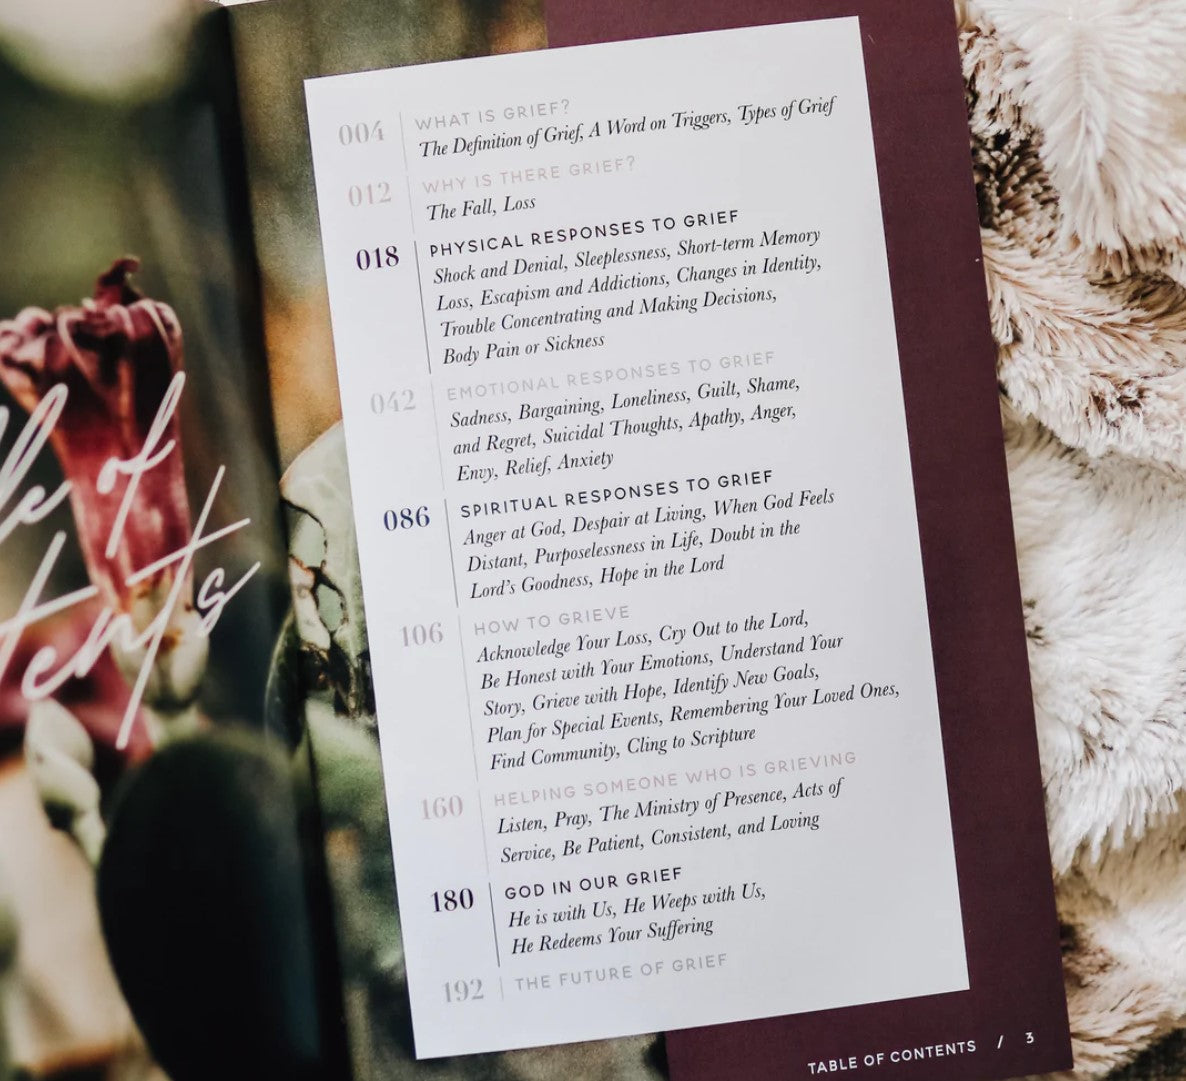 le of
tents
004 WHAT IS GRIEF?
The Definition of Grief, A Word on Triggers, Types of Grief
012 WHY IS THERE GRIEF?
The Fall, Loss
018 PHYSICAL RESPONSES TO GRIEF
Shock and Denial, Sleeplessness, Short-term Memory
Loss, Escapism and Addictions, Changes in Identity,
Trouble Concentrating and Making Decisions,
Body Pain or Sickness
042 EMOTIONAL RESPONSES TO GRIEF
Sadness, Bargaining, Loneliness, Guilt, Shame,
and Regret, Suicidal Thoughts, Apathy, Anger,
Envy, Relief, Anxiety
086 SPIRITUAL RESPONSES TO GRIEF
Anger at God, Despair at Living, When God Feels
Distant, Purposelessness in Life, Doubt in the
Lord's Goodness, Hope in the Lord
106 HOW TO GRIEVE
Acknowledge Your Loss, Cry Out to the Lord,
Be Honest with Your Emotions, Understand Your
Story, Grieve with Hope, Identify New Goals,
Plan for Special Events, Remembering Your Loved Ones,
Find Community, Cling to Scripture
160 HELPING SOMEONE WHO IS GRIEVING
Listen, Pray, The Ministry of Presence, Acts of
Service, Be Patient, Consistent, and Loving
180 GOD IN OUR GRIEF
He is with Us, He Weeps with Us,
He Redeems Your Suffering
192 THE FUTURE OF GRIEF
TABLE OF CONTENTS / 3